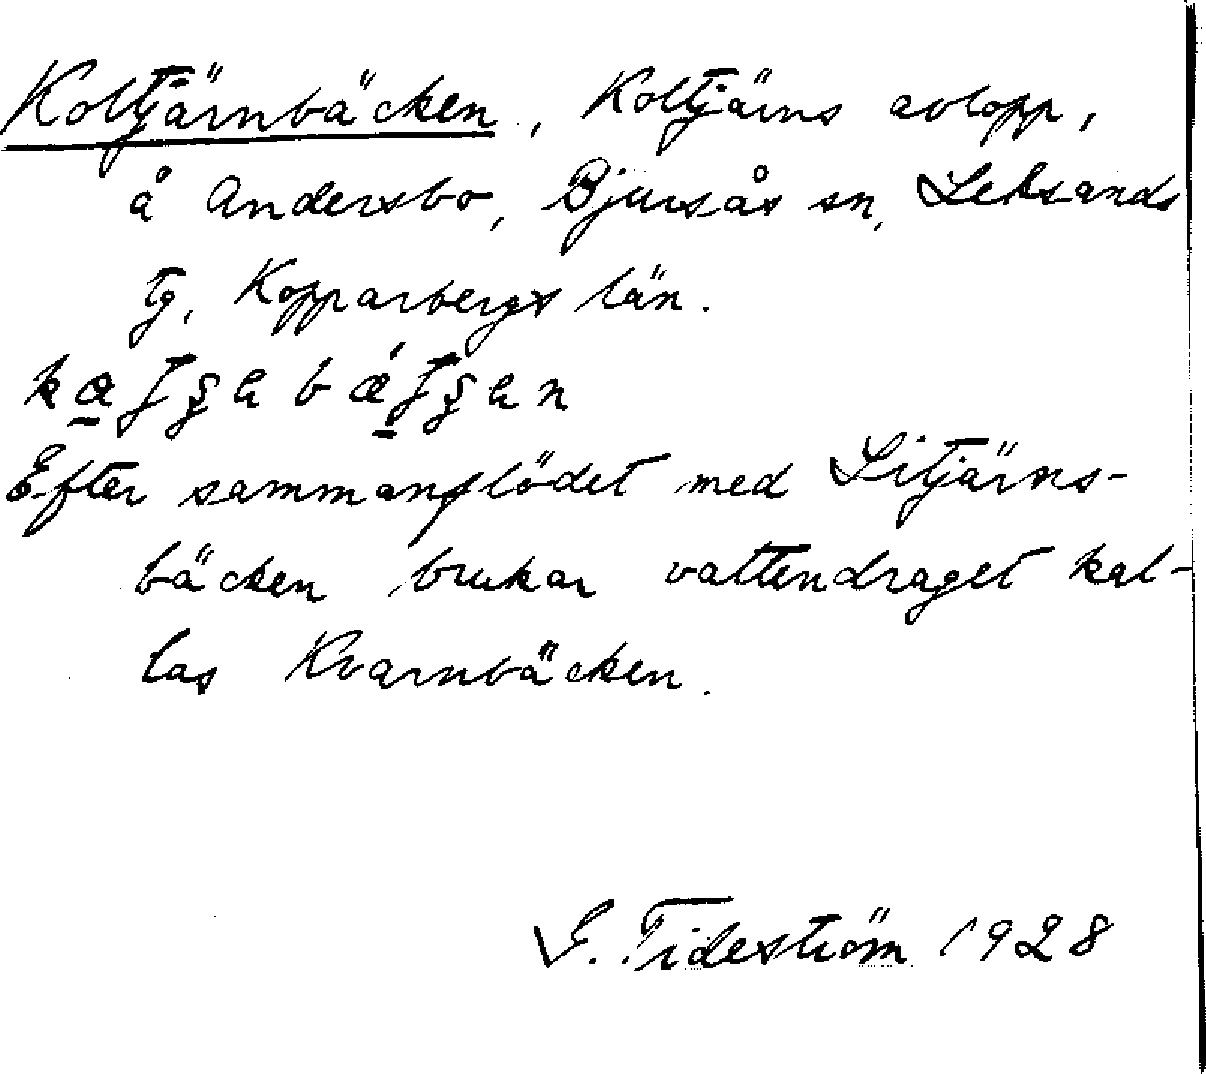 Koltjärnbäcken, Koltjärns avlopp,
å Andersbo, Bjursås sn, Leksands
tg, Kopparbergs län.
Efter sammanflödet med Litjärns-
bäcken brukar vattendraget kal-
las Kvarnbäcken.
G. Tideström 1928